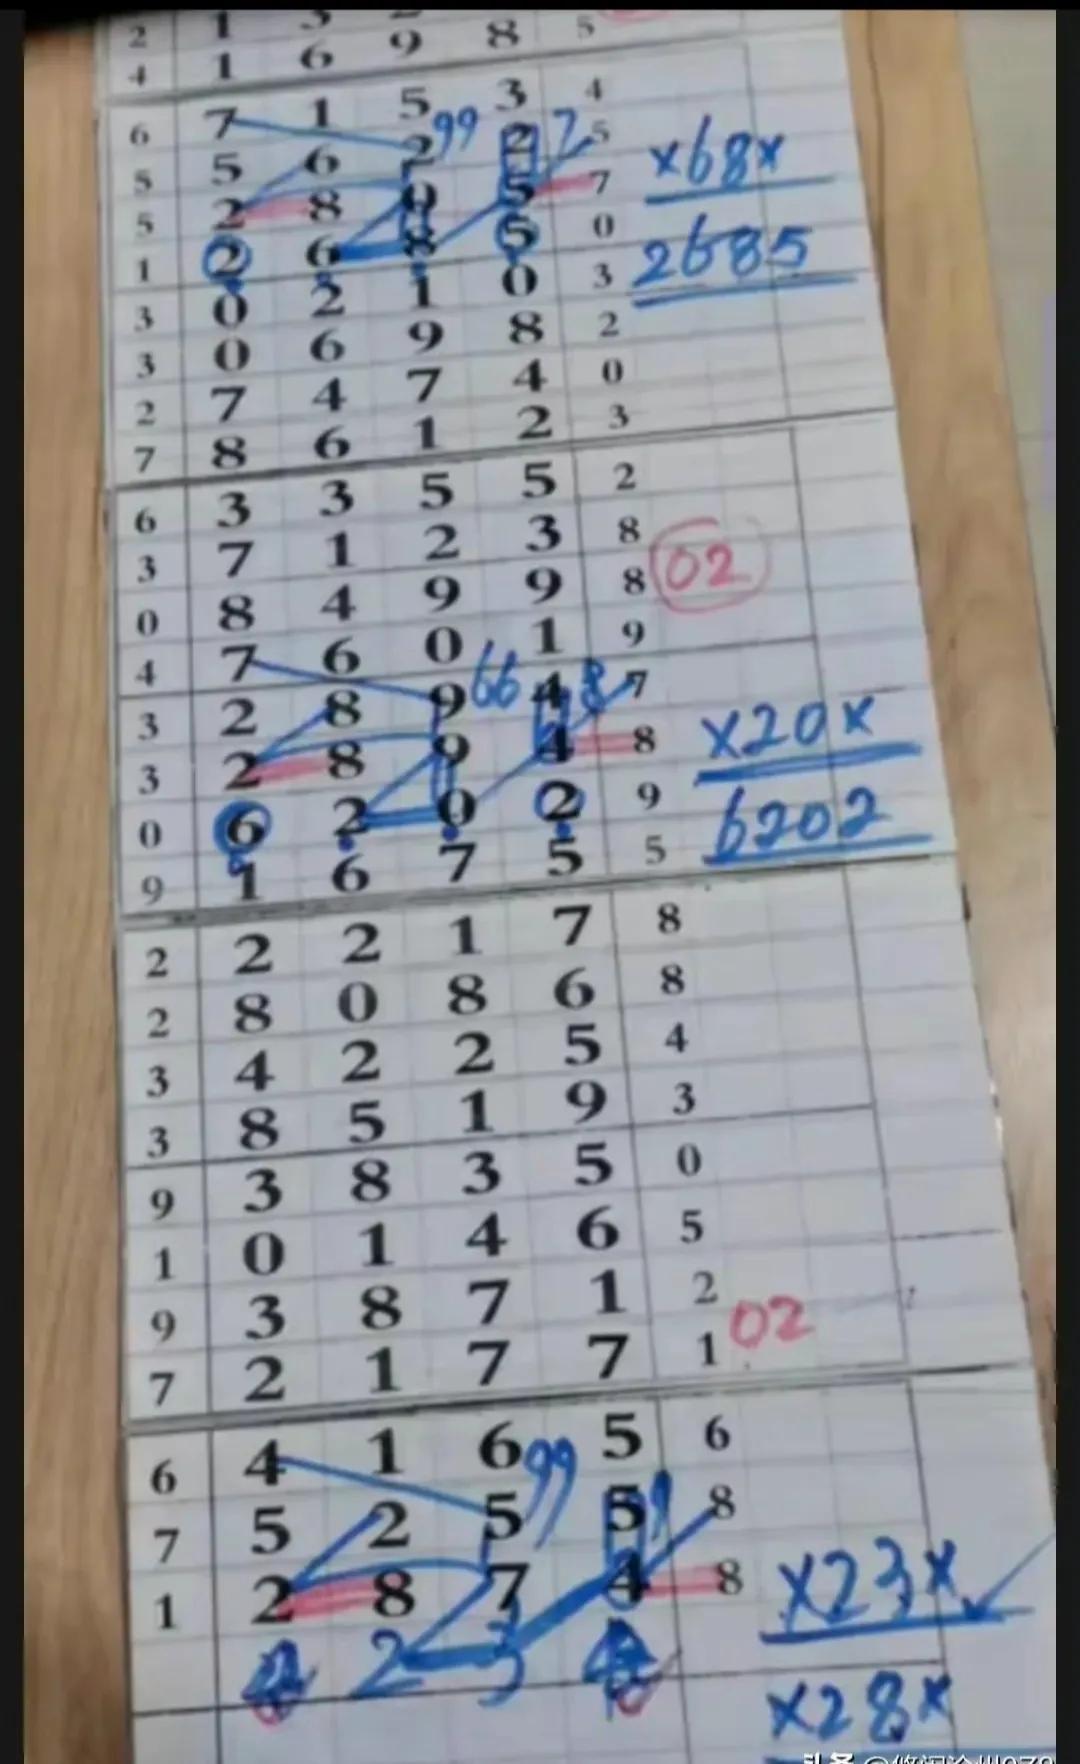 2 1 3 2 5
4 1 6 9 8 5
6 7 1 5 3 4
5 5 6 2 99 2 7 5
5 2 8 9 5 7 ×68×
1 2 6 8 5 0 2685
3 0 2 1 0 3
3 0 6 9 8 2
2 7 4 7 4 0
7 8 6 1 2 3
6 3 3 5 5 2
3 7 1 2 3 8
0 8 4 9 9 8 02
4 7 6 0 1 9
3 2 8 9 66 4 8 7
3 2 8 9 4 8 ×20×
0 6 2 0 2 9 6202
9 1 6 7 5 5
2 2 2 1 7 8
2 8 0 8 6 8
3 4 2 2 5 4
3 8 5 1 9 3
9 3 8 3 5 0
1 0 1 4 6 5
9 3 8 7 1 2
7 2 1 7 7 1 02
6 4 1 6 5 6
7 5 2 5 99 5 9 8
1 2 8 7 4 8 ×23×
2 3
×28×